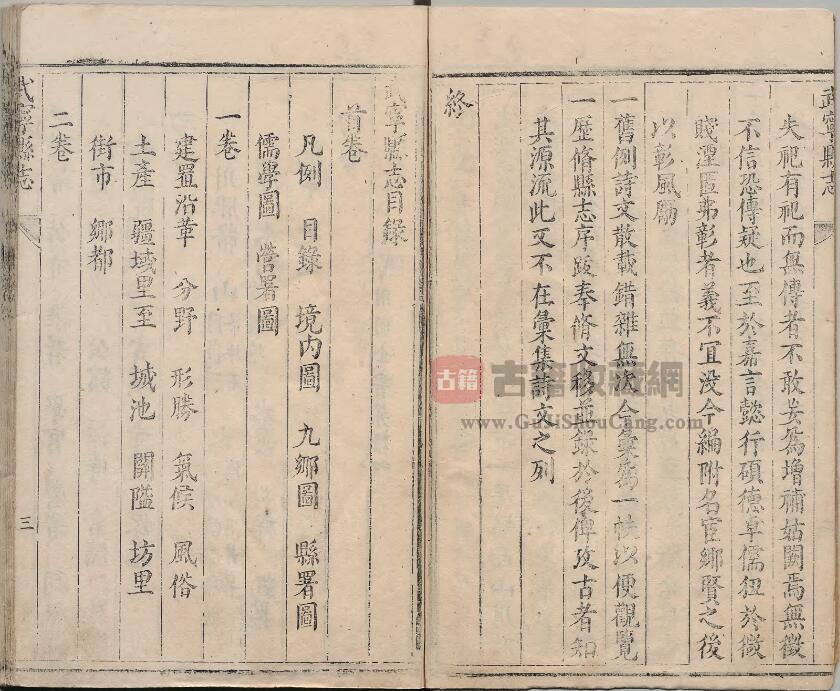 武寧縣志
失祀有祀而無傳者不敢妄爲增補姑闕焉無徵
不信恐傳疑也至於嘉言懿行碩德卓儒狃於微
賤湮匿弗彰者義不冝没今編附名宦鄉賢之後
以彰風勵
一舊例詩文散載錯雜無次今彙爲一帙以便觀覽
一歷脩縣志序跋奉脩文移並録於後俾攷古者知
其源流此又不在彙集詩文之列
終
武寧縣志目錄
首卷
凡例 目錄 境内圖 九鄉圖 縣署圖
儒學圖 營署圖
一卷
建置沿革 分野 形勝 氣候 風俗
土產 疆域里至 城池 關隘 坊里
街市 鄉都
二卷
武寧縣志
三
古籍
古籍收藏網
www.GuJiShouCang.com